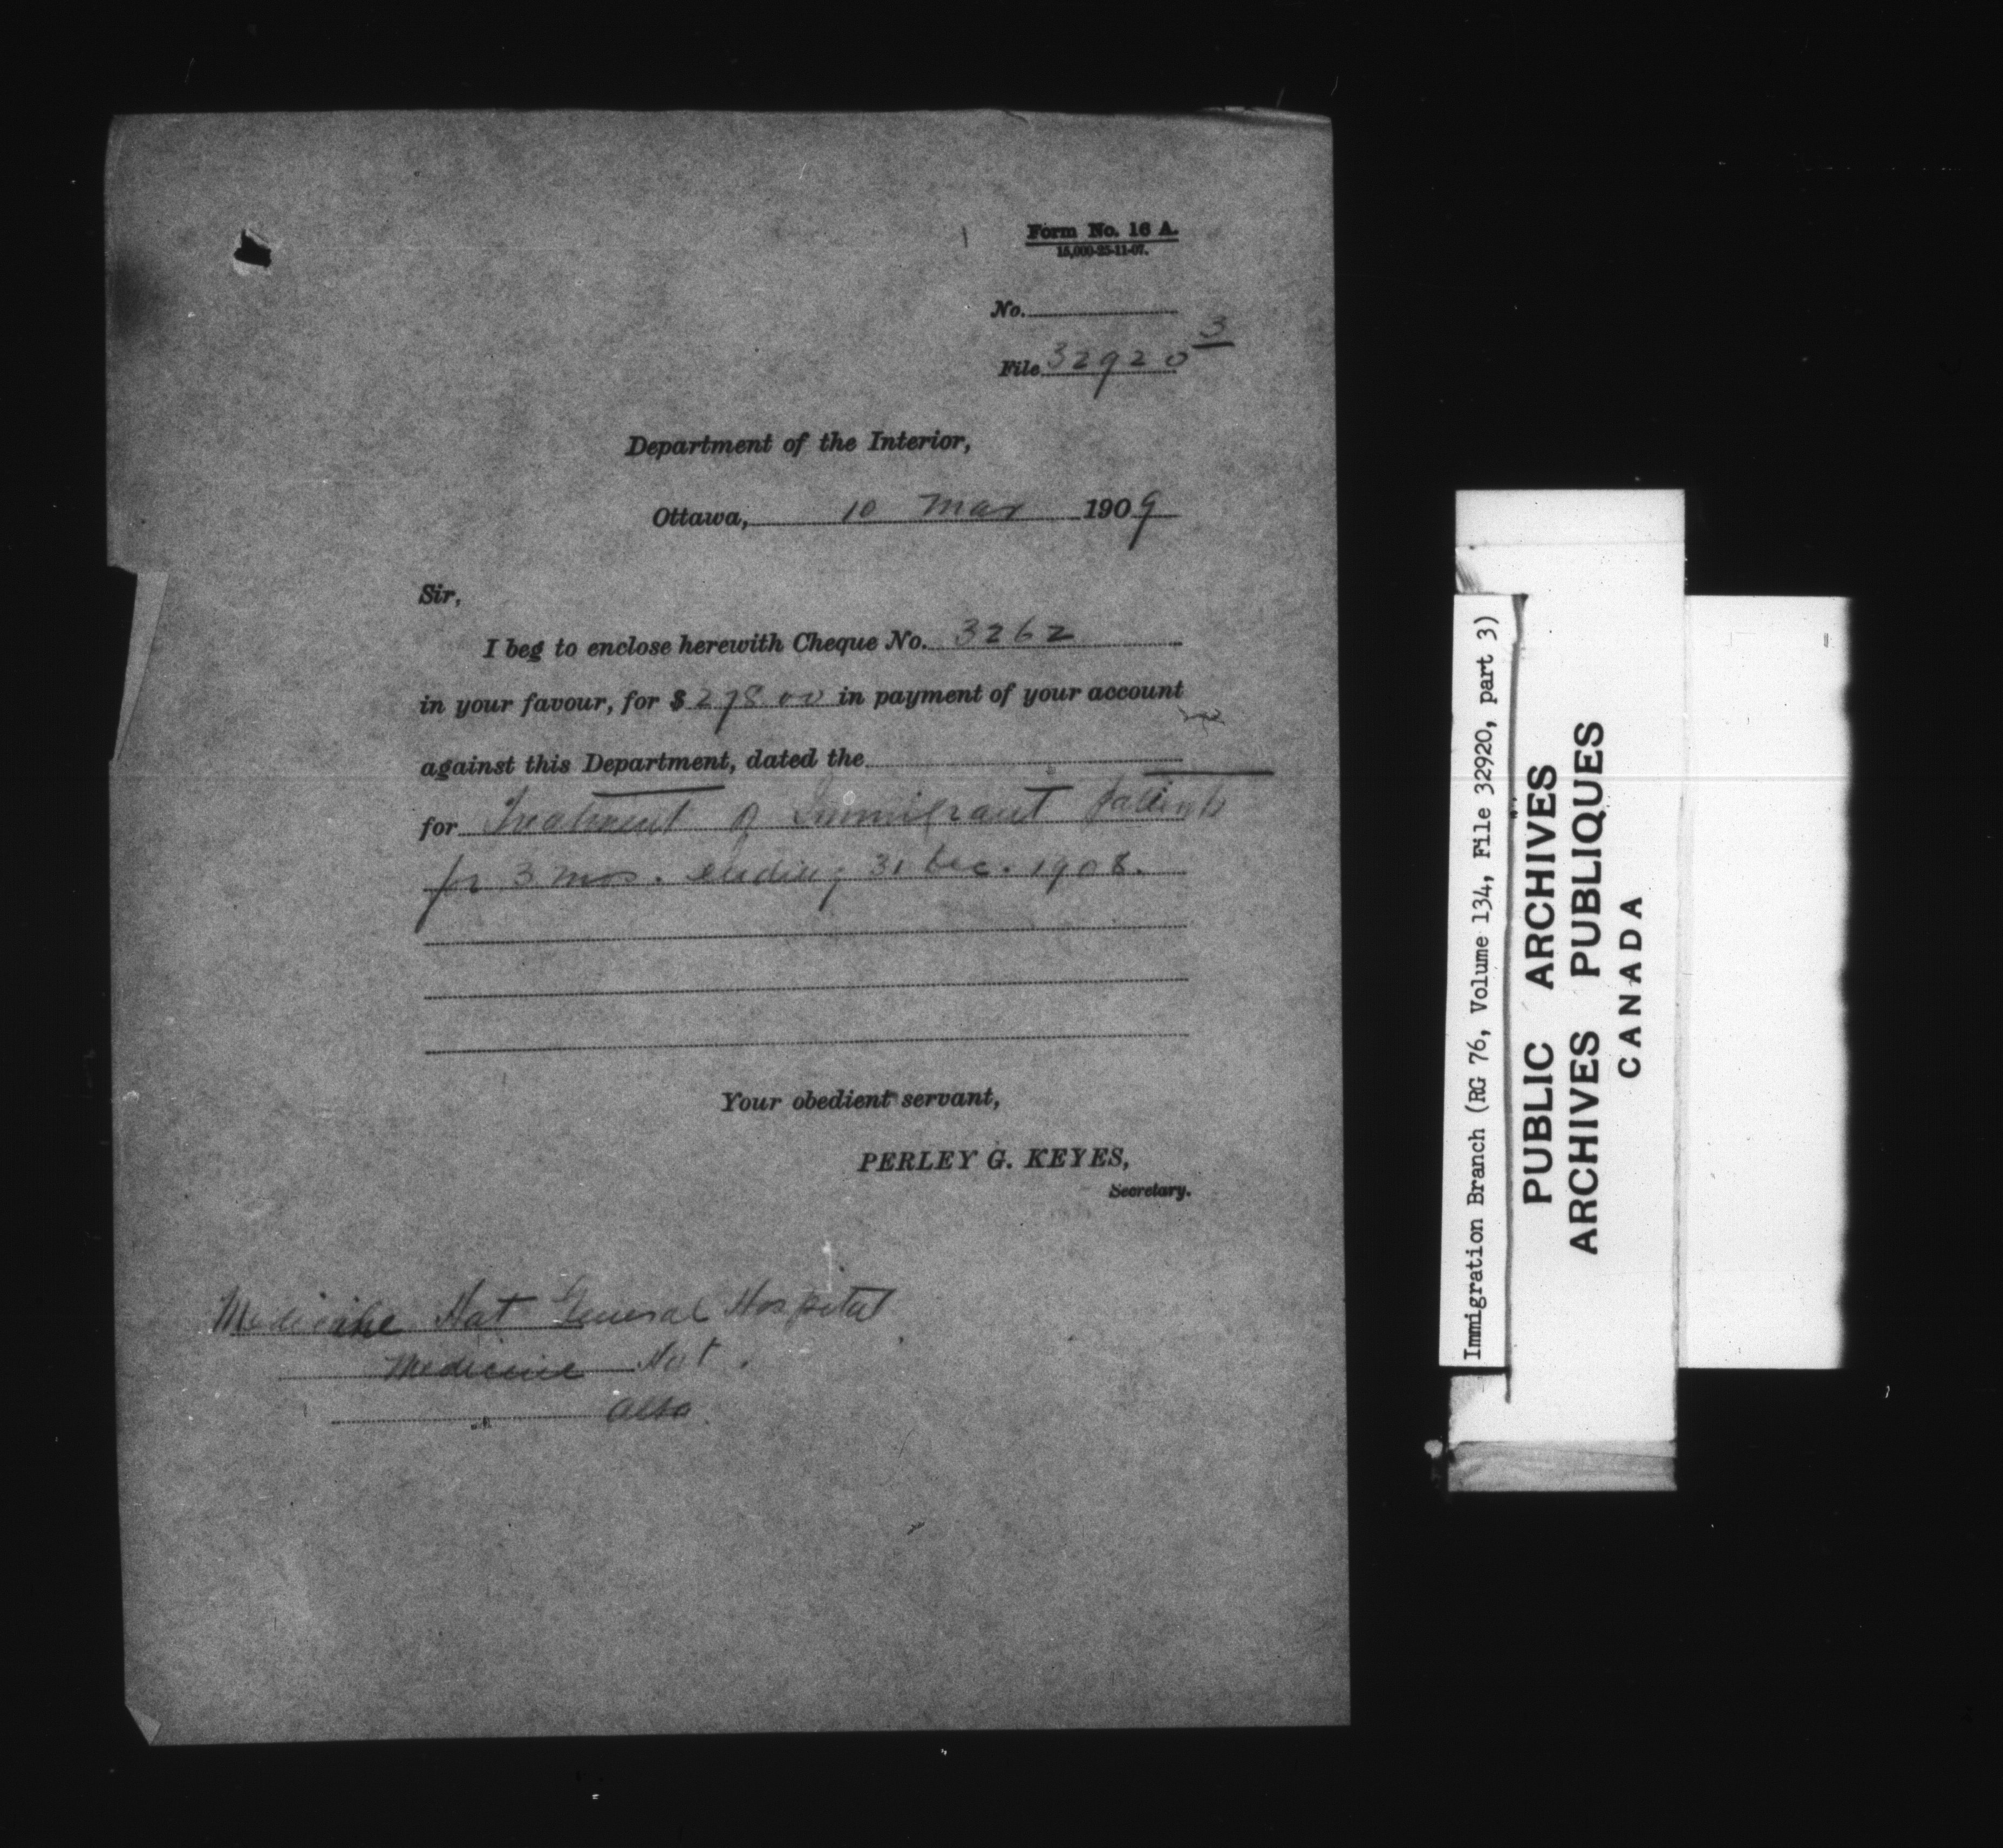 Form No. 16 A.
15,000-25-11-07.
No.
3
File 32920
Department of the Interior,
Ottawa, 10 Mar 1909
Sir,
I beg to enclose herewith Cheque No. 3262
in your favour, for $ 278 00 in payment of your account
against this Department, dated the
for Treatment of Immigrant Patients
for 3 mos. ending 31 Dec. 1908.
Your obedient servant,
PERLEY G. KEYES,
Secretary.
Medicine Hat General Hospital
Medicine Hat.
Alta.
Immigration Branch (RG 76, Volume 134, File 32920, part 3)
PUBLIC ARCHIVES
ARCHIVES PUBLIQUES
CANADA